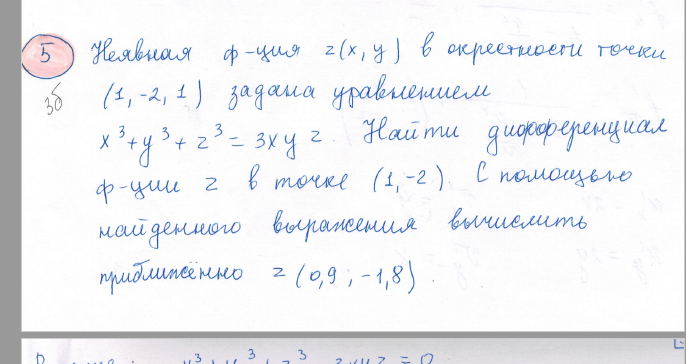 5 Неявная ф-ция z(x, y) в окрестности точки
3б (1, -2, 1) задана уравнением
x³+y³+z³=3xyz. Найти дифференциал
ф-ции z в точке (1,-2). С помощью
найденного выражения вычислить
приближённо z(0,9; -1,8).